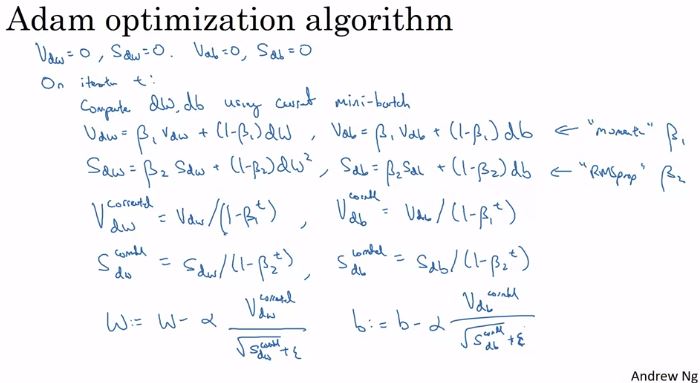 Adam optimization algorithm
V_dw = 0, S_dw = 0. V_db = 0, S_db = 0
On iteration t:
Compute dW, db using current mini-batch
V_dw = β₁ V_dw + (1-β₁) dW, V_db = β₁ V_db + (1-β₁) db ← "momentum" β₁
S_dw = β₂ S_dw + (1-β₂) dW², S_db = β₂ S_db + (1-β₂) db ← "RMSprop" β₂
V_dw^corrected = V_dw / (1-β₁^t), V_db^corrected = V_db / (1-β₁^t)
S_dw^corrected = S_dw / (1-β₂^t), S_db^corrected = S_db / (1-β₂^t)
W := W - α V_dw^corrected / (√S_dw^corrected + ε) b := b - α V_db^corrected / (√S_db^corrected + ε)
Andrew Ng